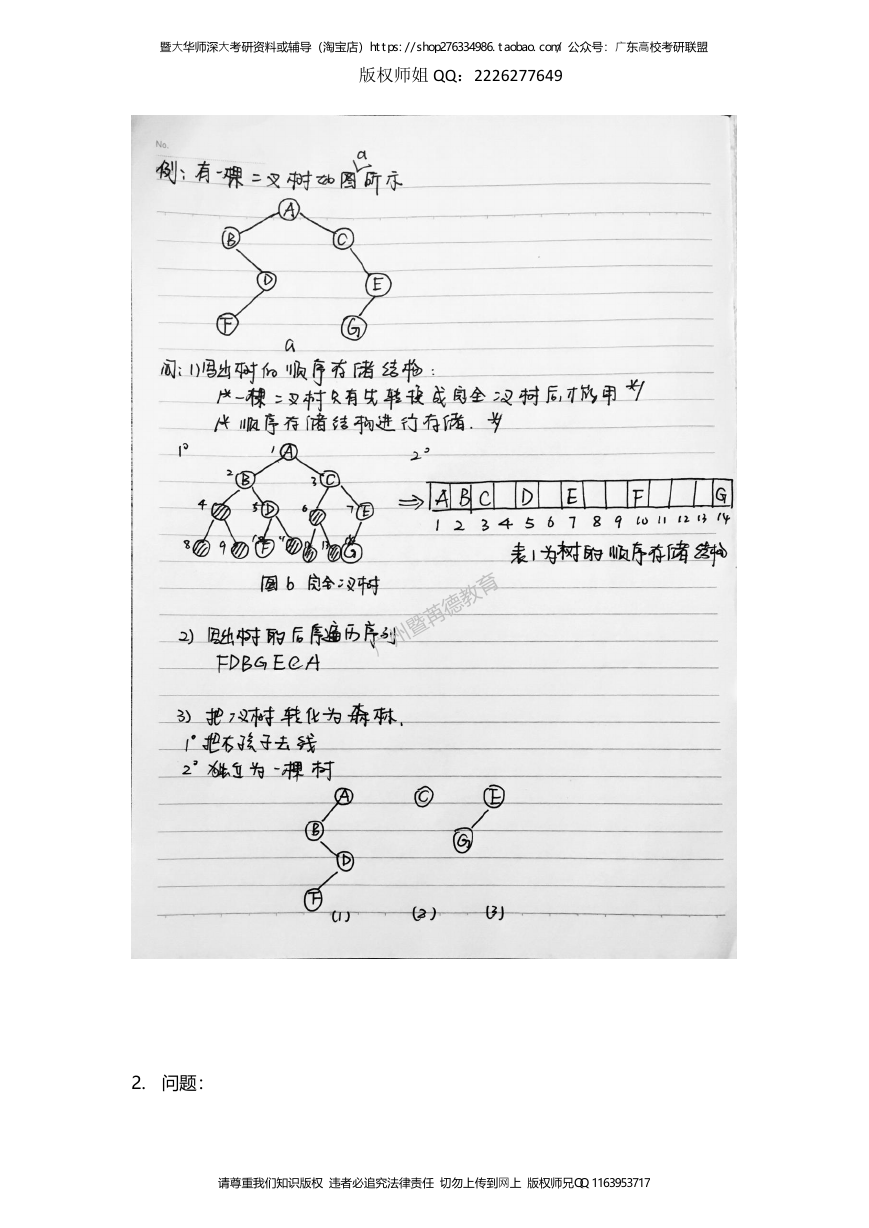 暨大华师深大考研资料或辅导（淘宝店）https://shop276334986.taobao.com/ 公众号：广东高校考研联盟
版权师姐 QQ：2226277649
No.
例：有一棵二叉树如图a所示
A
B C
D E
F G
a
问：1)写出树的顺序存储结构：
/*一棵二叉树只有先转换成完全二叉树后,才能用*/
/*顺序存储结构进行存储.*/
1° 2°
1 A
2 B 3 C
4 5 D 6 7 E
8 9 10 F 11 12 13 14 G
⇒ A B C D E F G
1 2 3 4 5 6 7 8 9 10 11 12 13 14
表1为树的顺序存储结构
图b 完全二叉树
广州暨苒德教育
2) 写出树的后序遍历序列
FDBGECA
3) 把二叉树转化为森林.
1° 把右孩子去线
2° 独立为一棵树
A C E
B G
D
F
(1) (2) (3)
2. 问题：
请尊重我们知识版权 违者必追究法律责任 切勿上传到网上 版权师兄QQ 1163953717